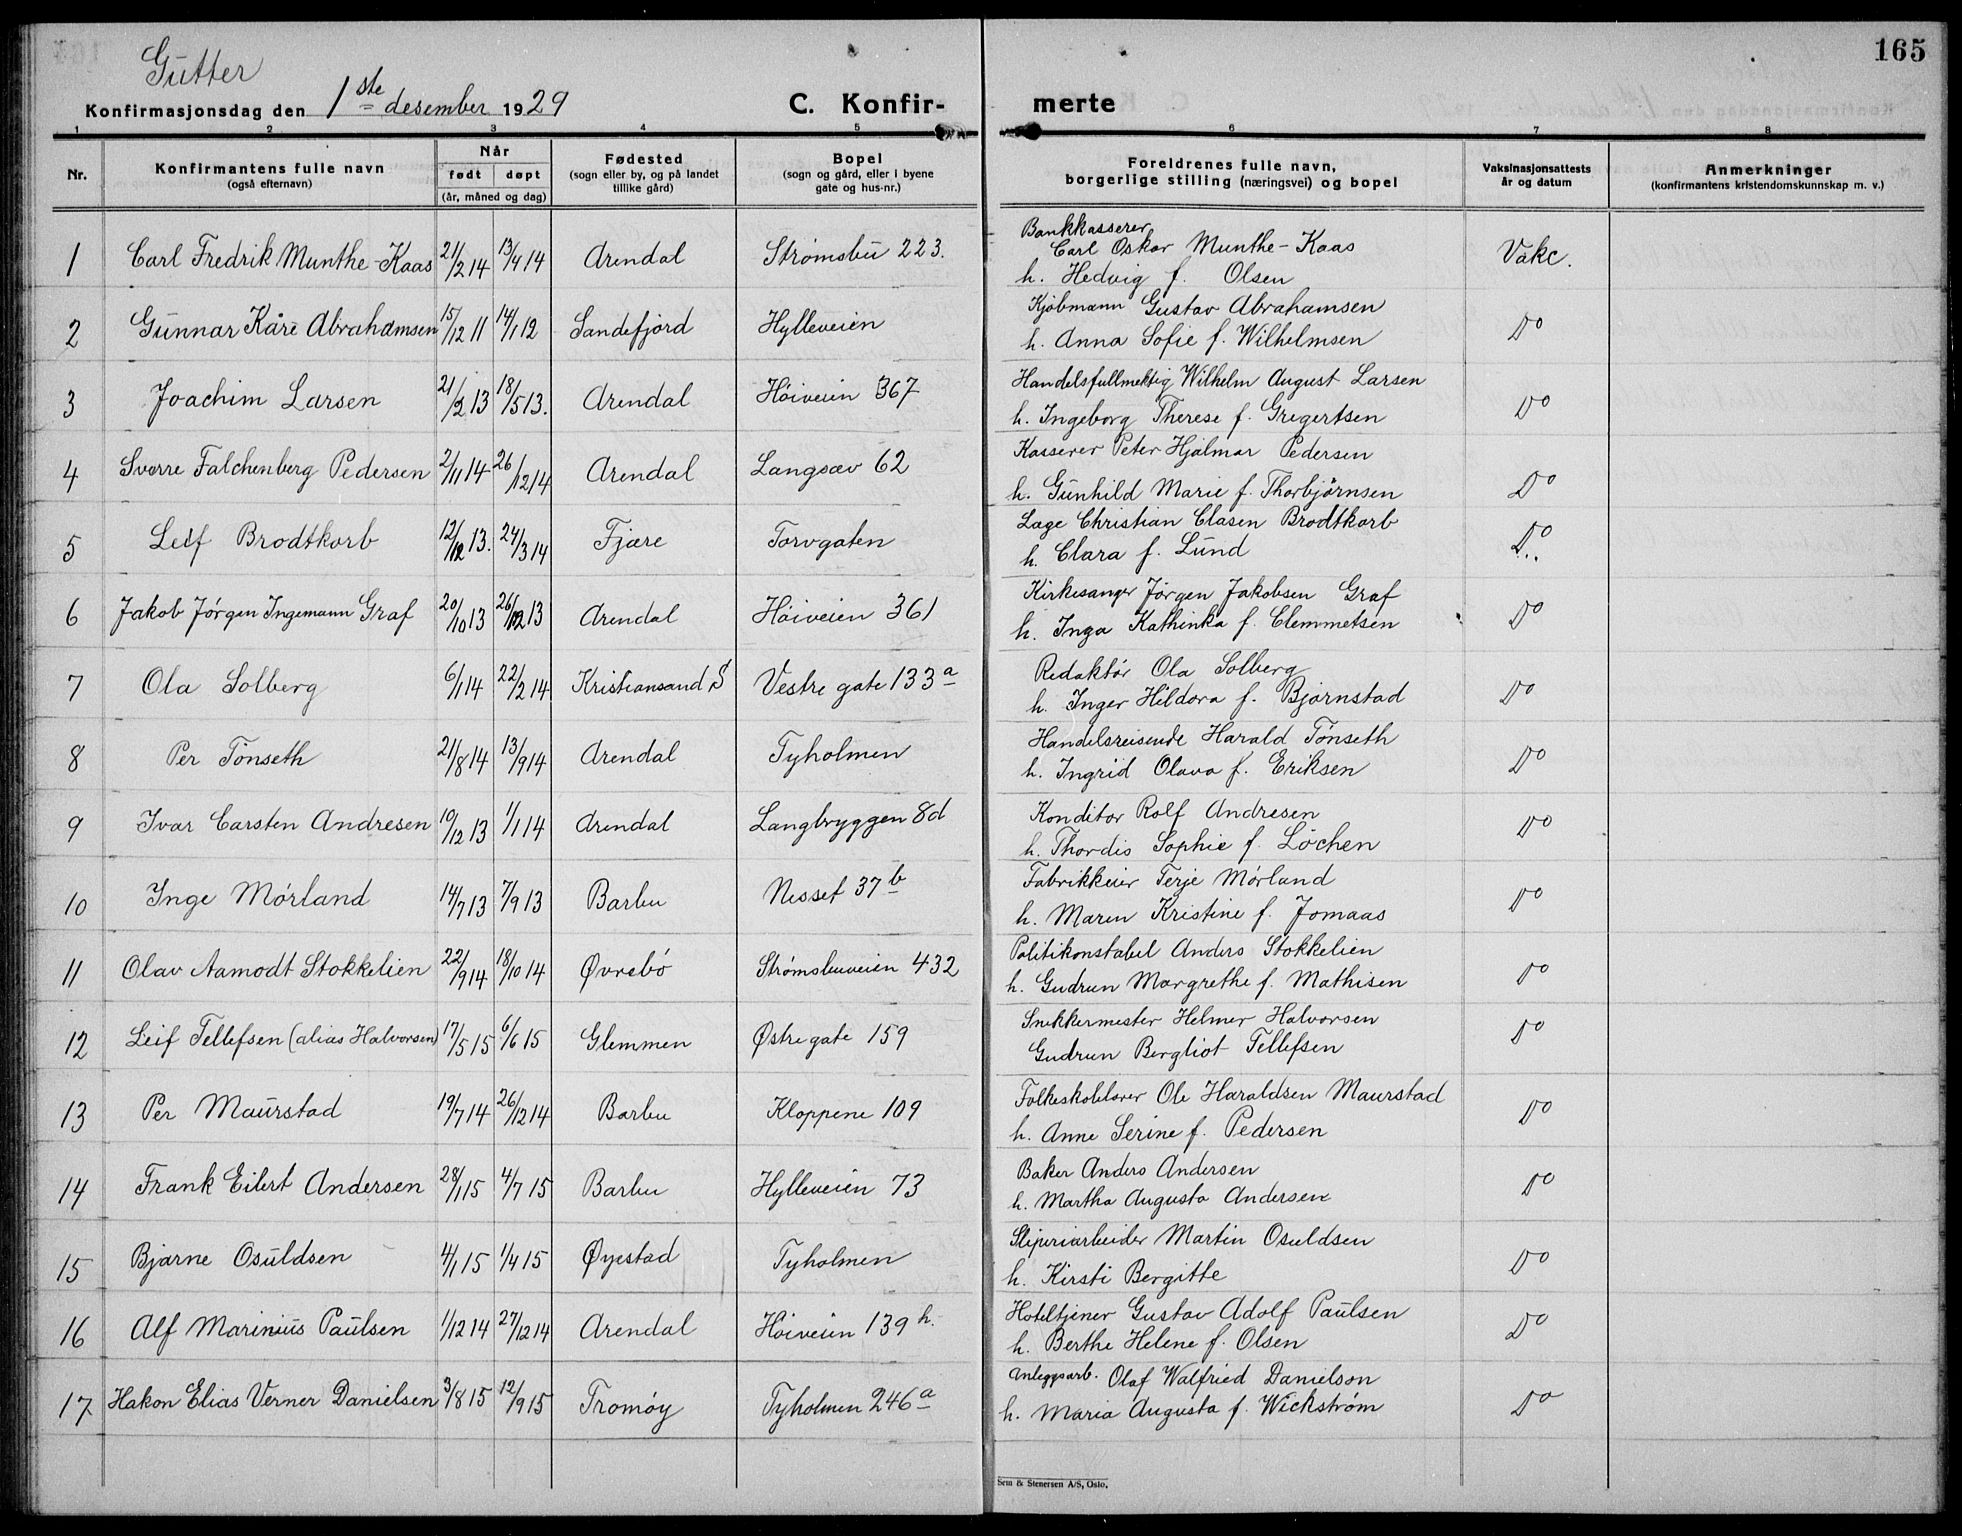 165
Gutter
Konfirmasjonsdag den 1ste desember 1929 C. Konfir- merte
1 2 3 4 5 6 7 8
Nr. Konfirmantens fulle navn (også efternavn) Når født døpt (år, måned og dag) Fødested (sogn eller by, og på landet tillike gård) Bopel (sogn og gård, eller i byene gate og hus-nr.) Foreldrenes fulle navn, borgerlige stilling (næringsvei) og bopel Vaksinasjonsattests år og datum Anmerkninger (konfirmantens kristendomskunnskap m. v.)
1 Carl Fredrik Munthe-Kaas 21/2 14 13/4 14 Arendal Strømsbu 223. Bankkasserer Carl Oskar Munthe-Kaas Vakc.
h. Hedvig f. Olsen
2 Gunnar Kåre Abrahamsen 15/12 11 14/1 12 Sandefjord Hylleveien Kjøbmann Gustav Abrahamsen Do
h. Anna Sofie f. Wilhelmsen
3 Joachim Larsen 21/2 13 18/5 13. Arendal Høiveien 367 Handelsfullmektig Wilhelm August Larsen Do
h. Ingeborg Therese f. Gregertsen
4 Sverre Falchenberg Pedersen 2/11 14 26/12 14 Arendal Langsæv 62 Kasserer Peter Hjalmar Pedersen Do
h. Gunhild Marie f. Thorbjørnsen
5 Leif Brodtkorb 12/12 13. 24/3 14 Fjære Torvgaten Læge Christian Clasen Brodtkorb Do
h. Clara f. Lund
6 Jakob Jørgen Ingemann Graf 20/10 13 26/12 13 Arendal Høiveien 361 Kirkesanger Jørgen Jakobsen Graf Do
h. Inga Kathinka f. Clemmetsen
7 Ola Solberg 6/1 14 22/2 14 Kristiansand S Vestre gate 133 a Redaktør Ola Solberg Do
h. Inger Hildora f. Bjørnstad
8 Per Tønseth 21/8 14 13/9 14 Arendal Tyholmen Handelsreisende Harald Tønseth Do
h. Ingrid Olava f. Eriksen
9 Ivar Carsten Andresen 19/12 13 1/1 14 Arendal Langbryggen 8d Konditor Rolf Andresen Do
h. Thordis Sophie f. Løchen
10 Inge Mørland 14/7 13 7/9 13 Barbu Nesset 37 b Fabrikkeier Terje Mørland Do
h. Maren Kristine f. Jomaas
11 Olav Aamodt Stokkelien 22/9 14 18/10 14 Øvrebø Strømsbuveien 432 Politikonstabel Anders Stokkelien Do
h. Gudrun Margrethe f. Mathisen
12 Leif Tellefsen (alias Halvorsen) 17/5 15 6/6 15 Glemmen Østre gate 159 Snekkermester Helmer Halvorsen Do
Gudrun Bergliot Tellefsen
13 Per Maurstad 19/7 14 26/12 14 Barbu Kloppene 109 Folkeskolelærer Ole Haraldsen Maurstad Do
h. Anne Serine f. Pedersen
14 Frank Eilert Andersen 28/1 15 4/7 15 Barbu Hylleveien 73 Baker Anders Andersen Do
h. Martha Augusta Andersen
15 Bjarne Osuldsen 4/1 15 1/4 15 Øyestad Tyholmen Sliperiarbeider Martin Osuldsen Do
h. Kirsti Bergitte
16 Alf Marinius Paulsen 1/12 14 27/12 14 Arendal Høiveien 139 h. Hoteltjener Gustav Adolf Paulsen Do
h. Berthe Helene f. Olsen
17 Hakon Elias Verner Danielsen 3/8 15 12/9 15 Tromøy Tyholmen 246 a Anleggsarb. Olaf Walfried Danielson Do
h. Maria Augusta f. Wickstrøm
Sem & Stenersen A/S, Oslo.